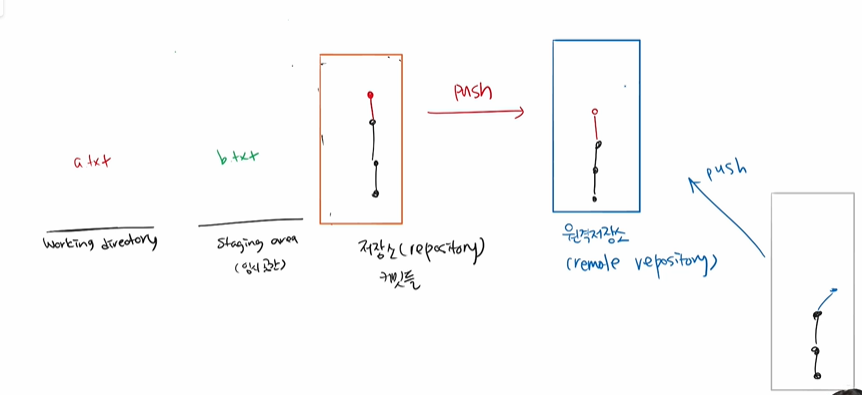 a txt
b txt
push
push
working directory
Staging area
(임시공간)
저장소(repository)
커밋들
원격저장소
(remote repository)